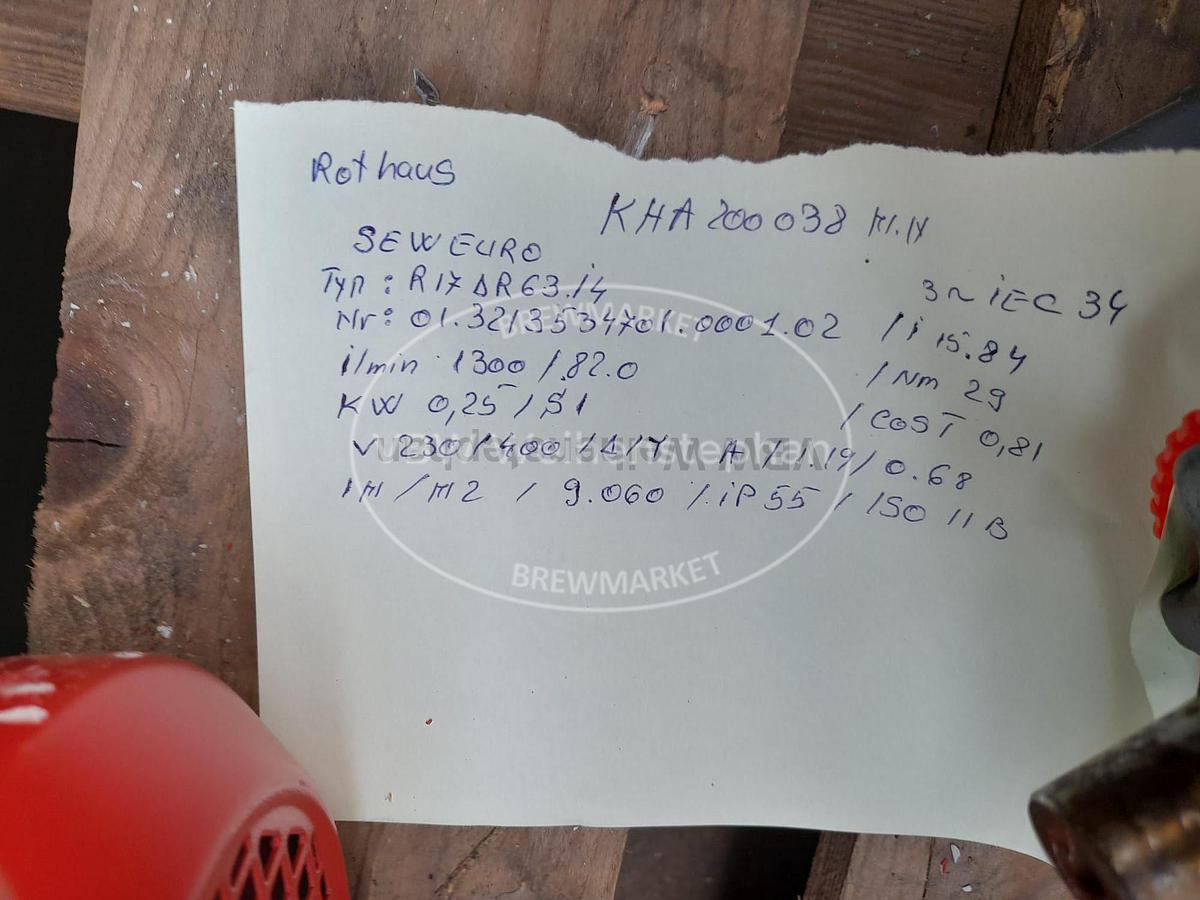 Rothaus
KHA200038
SEW EURO
Typ: R17 DR63.14 3~ iEC 34
Nr: 01.3213534701.0001.02 / i 15.84
i/min 1300 / 82.0 / Nm 29
KW 0,25 / S1 / COST 0,81
V 230/400 Δ/Y A / 1.19/0.68
IM / M2 / 9.060 / iP 55 / ISO 11 B
BREWMARKET
BREWMARKET